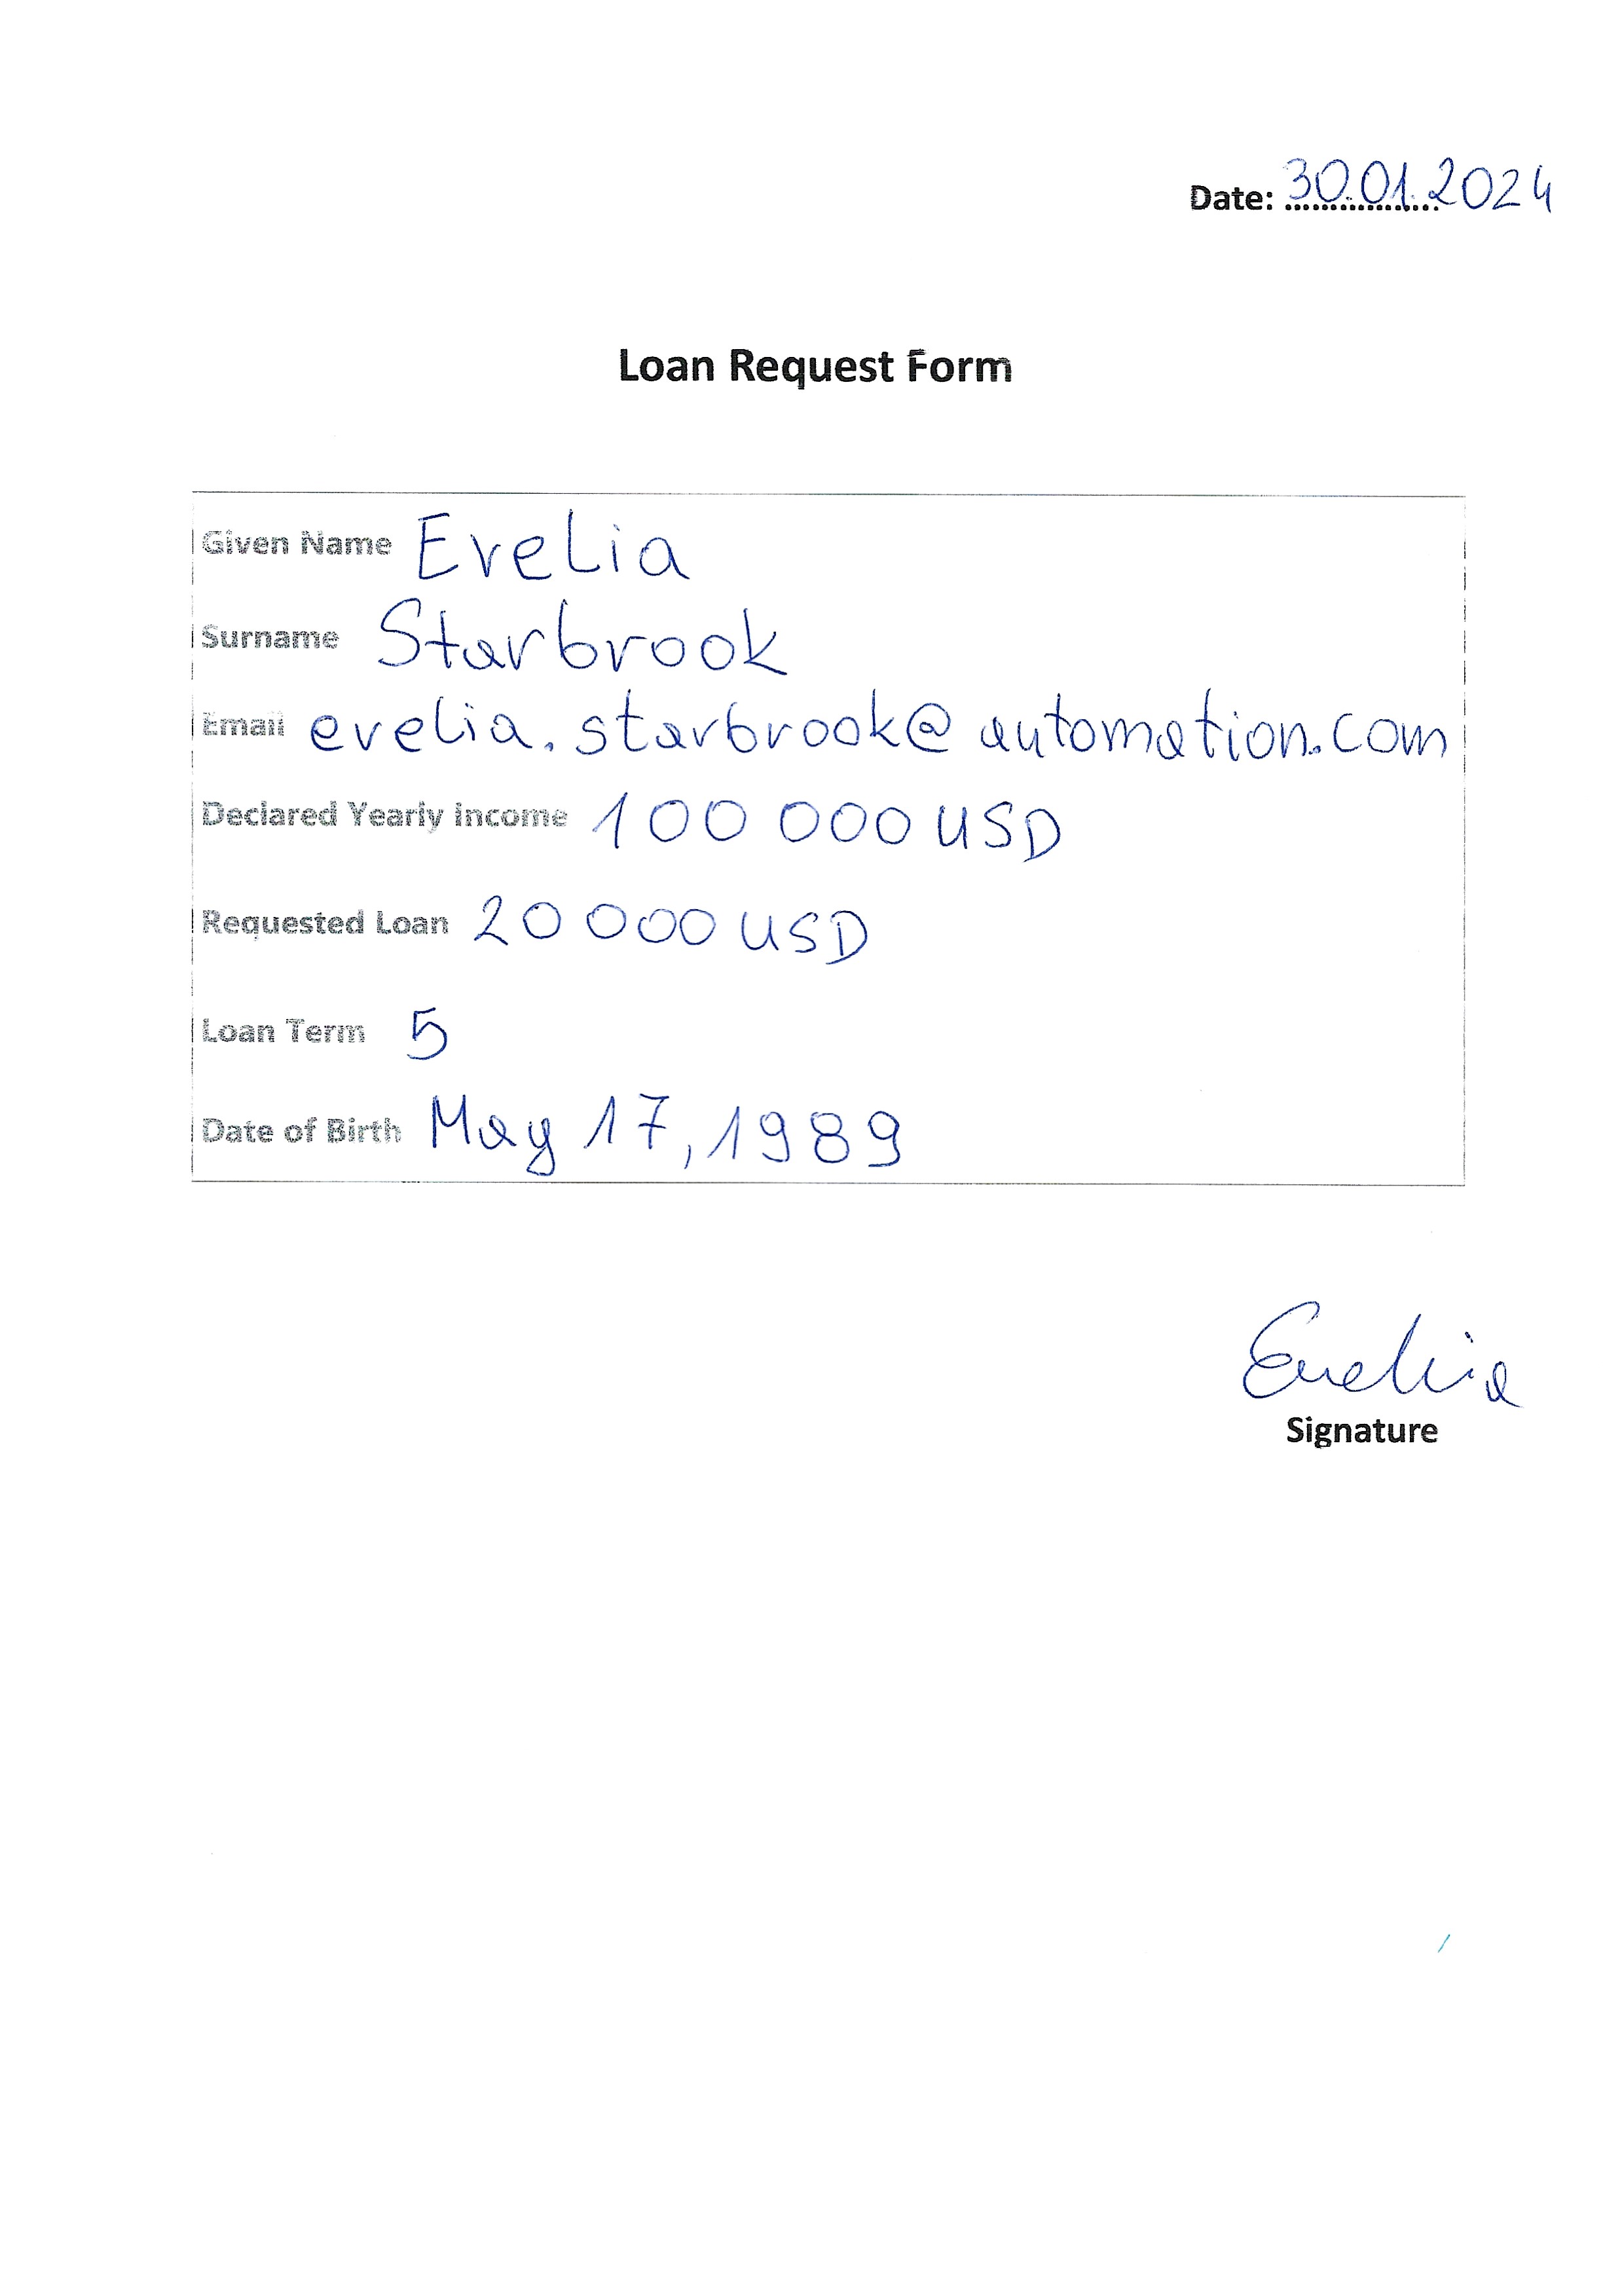 Date: 30.01.2024
Loan Request Form
Given Name Evelia
Surname Starbrook
Email evelia.starbrook@automation.com
Declared Yearly income 100 000 USD
Requested Loan 20 000 USD
Loan Term 5
Date of Birth May 17, 1989
Evelia
Signature